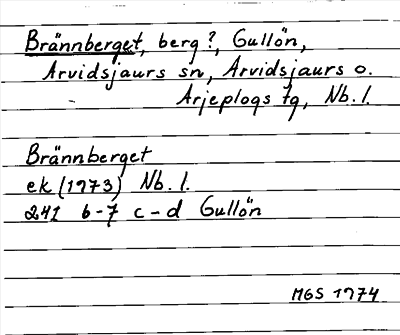 Brännberget, berg?, Gullön,
Arvidsjaurs sn, Arvidsjaurs o.
Arjeplogs tg, Nb. l.
Brännberget
ek (1973) Nb. l.
241 b-7 c-d Gullön
MGS 1974